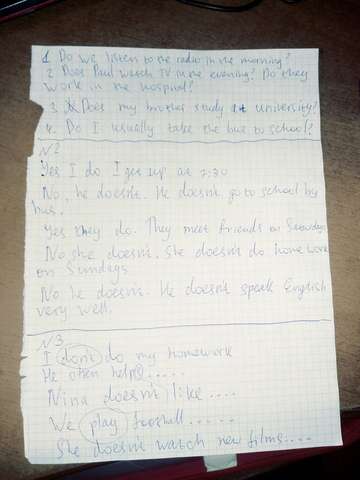 1 Do we listen to the radio in the morning?
2. Does Paul watch TV in the evening? Do they
work in the hospital?
3 Does my brother study at university?
4. Do I usually take the bus to school?
N2
Yes I do I get up at 7:30
No, he doesn't. He doesn't go to school by
bus.
Yes they do. They meet friends on Saturdays
No she doesn't. She doesn't do homework
on Sundays
No he doesn't. He doesn't speak English
very well.
N3
I don't do my homework
He often helps.....
Nina doesn't like ....
We play football.....
She doesn't watch new films....